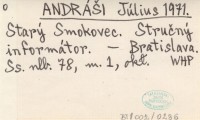 ANDRÁŠI Július 1971.
Starý Smokovec. Stručný
informátor. — Bratislava.
Ss. nlb. 78, m. 1, okt. WHP